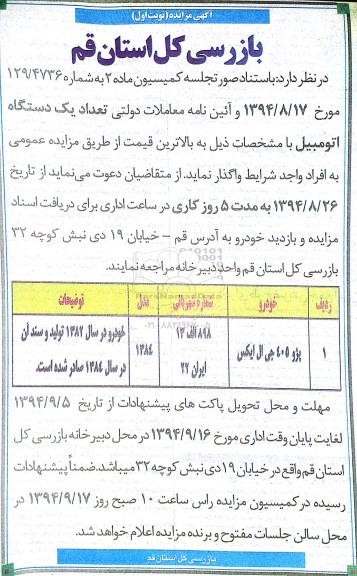 آگهی مزایده (نوبت اول)
بازرسی کل استان قم
در نظر دارد: باستناد صورتجلسه کمیسیون ماده ۲ به شماره ۱۲۹/۴۷۳۶
مورخ ۱۳۹۴/۸/۱۷ و آئین نامه معاملات دولتی تعداد یک دستگاه
اتومبیل با مشخصات ذیل به بالاترین قیمت از طریق مزایده عمومی
به افراد واجد شرایط واگذار نماید. از متقاضیان دعوت می‌نماید از تاریخ
۱۳۹۴/۸/۲۶ به مدت ۵ روز کاری در ساعت اداری برای دریافت اسناد
مزایده و بازدید خودرو به آدرس قم - خیابان ۱۹ دی نبش کوچه ۳۲
بازرسی کل استان قم واحد دبیرخانه مراجعه نمایند.
ردیف خودرو شماره شهربانی مدل توضیحات
۱ پژو ۴۰۵ جی ال ایکس ۸۹۸ الف ۱۳ ایران ۲۷ ۱۳۸۴ خودرو در سال ۱۳۸۲ تولید و سند آن
در سال ۱۳۸۴ صادر شده است.
مهلت و محل تحویل پاکت های پیشنهادات از تاریخ ۱۳۹۴/۹/۵
لغایت پایان وقت اداری مورخ ۱۳۹۴/۹/۱۶ در محل دبیرخانه بازرسی کل
استان قم واقع در خیابان ۱۹ دی نبش کوچه ۳۲ میباشد. ضمناً پیشنهادات
رسیده در کمیسیون مزایده راس ساعت ۱۰ صبح روز ۱۳۹۴/۹/۱۷ در
محل سالن جلسات مفتوح و برنده مزایده اعلام خواهد شد.
بازرسی کل استان قم